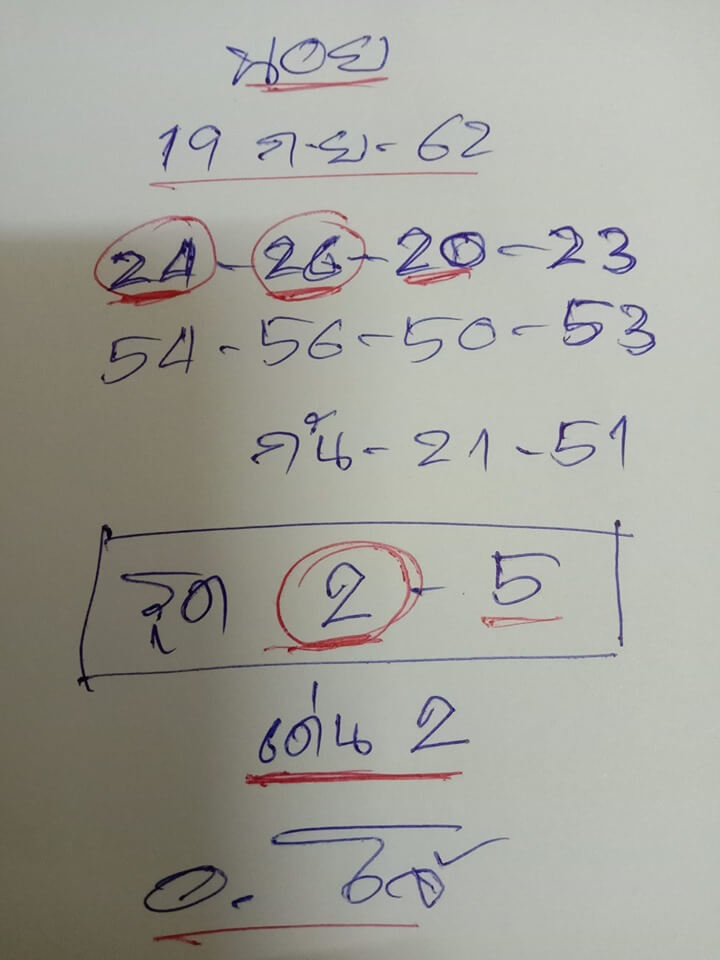 นอย
19 ก.ย. 62
24-26-20-23
54-56-50-53
กัน-21-51
รูด 2-5
เด่น 2
อ. โจ้